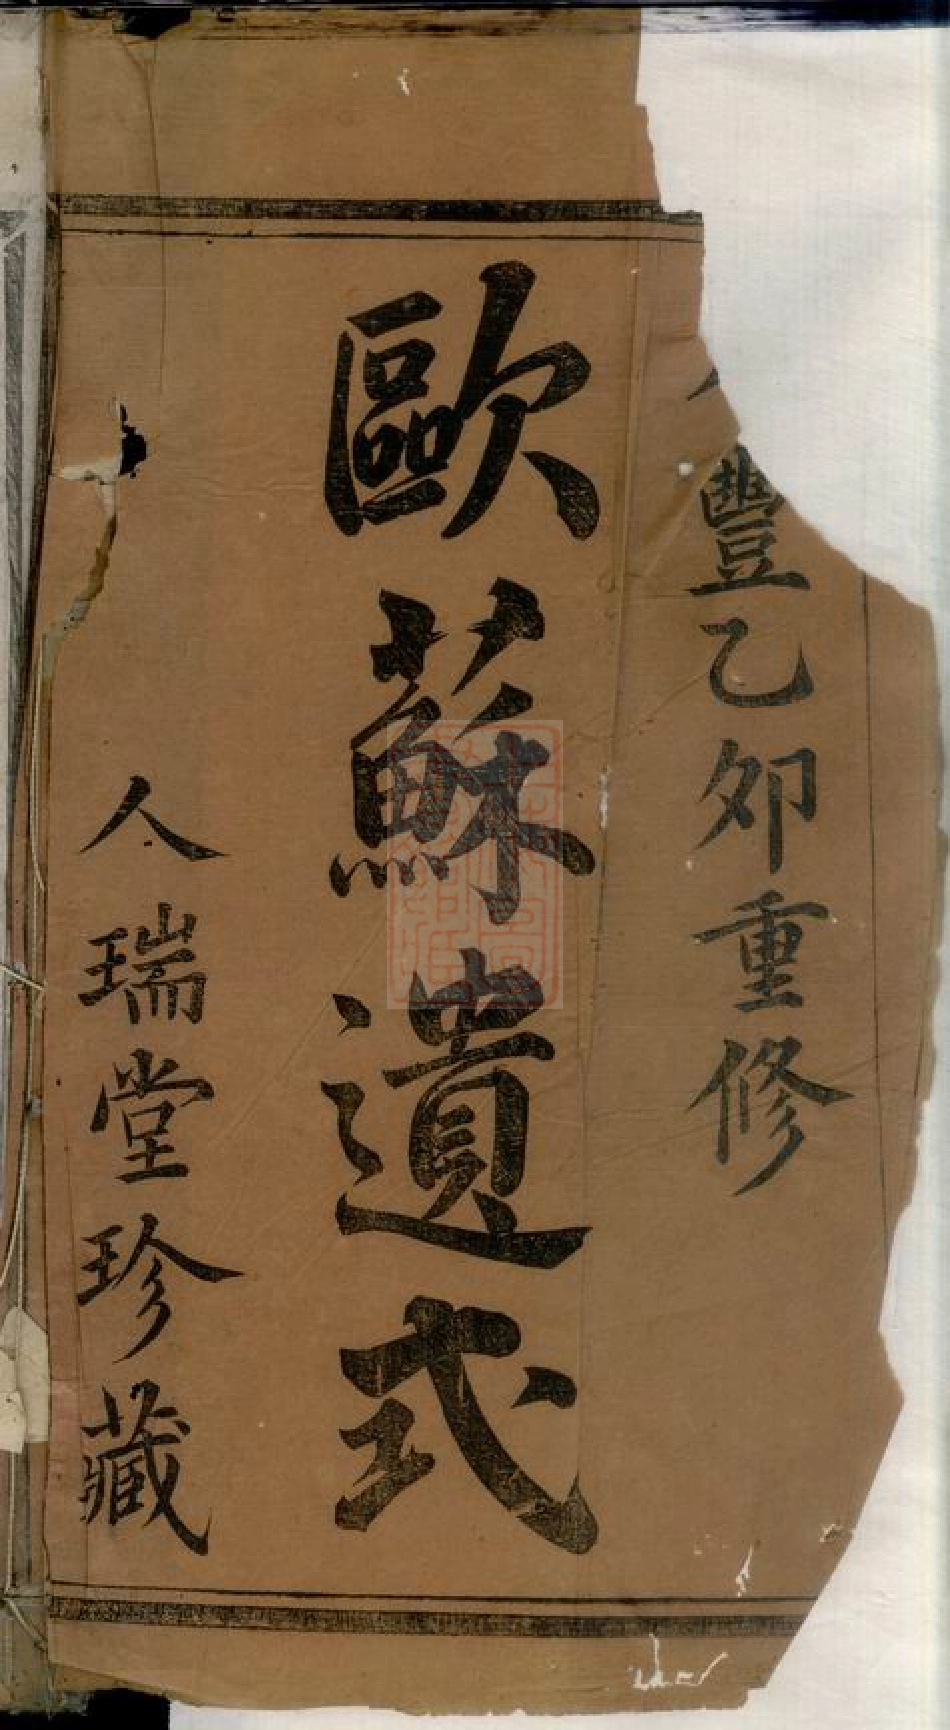 豐乙卯重修
歐蘇遺式
人瑞堂珍藏